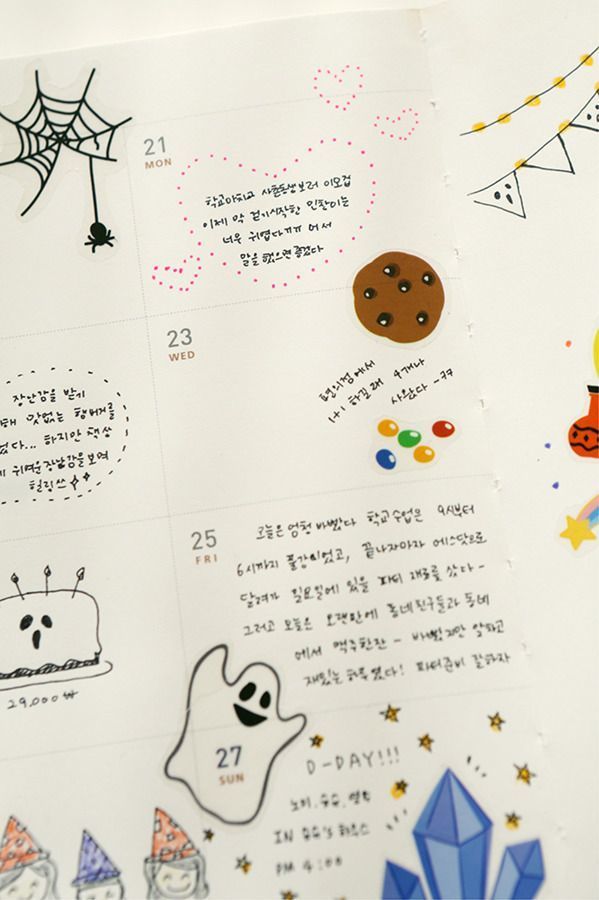 21
MON
학교마치고 사촌동생보러 이모집
이제 막 걷기시작한 인찬이는
너무 귀엽다ㄲㄲ 어서
말을 했으면 좋겠다
23
WED
편의점에서
1+1 하길래 4개나
사왔다 -ㅋㅋ
장난감을 받기
해 맛없는 햄버거를
었다... 하지만 책상
에 귀여운 장난감을 보며
힐링쓰
25
FRI
오늘은 엄청 바빴다 학교수업은 9시부터
6시까지 풀강이었고, 끝나자마자 에스닷으로
달려가 일요일에 있을 파티 재료를 샀다 -
그리고 오늘은 오랜만에 동네친구들과 동네
에서 맥주한잔 - 바빴지만 알차고
재밌는 하루였다! 파티준비 잘하자
29,000₩
27
SUN
D-DAY!!!
IN 하우스
PM 4:00